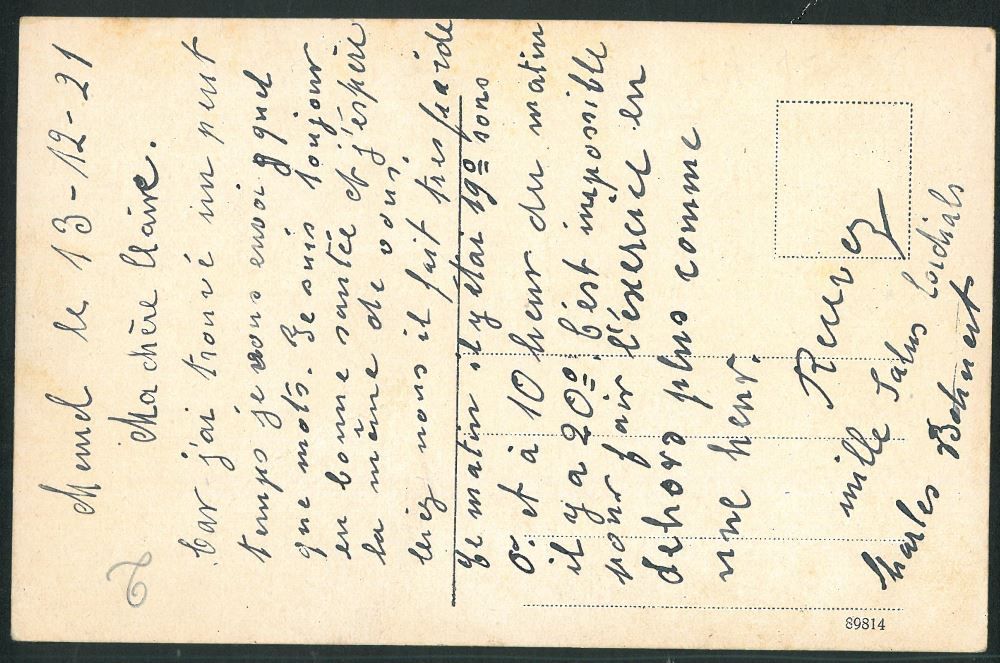 Memel le 13-12-21
Machère Claire.
Car j'ai trouvé in peut
temps je vous envoi quel
que mots. Je suis toujour
en bonne santée et j'éspère
la même de vous
ici nous il fait tres froide
Ce matin il y étai 19º sons
O. et à 10 heur du matin
il y a 20º. C'est impossible
pour fair l'éxercice en
dehors plus comme
une heur.
Recevez
mille Saluts Cordials
Charles
89814